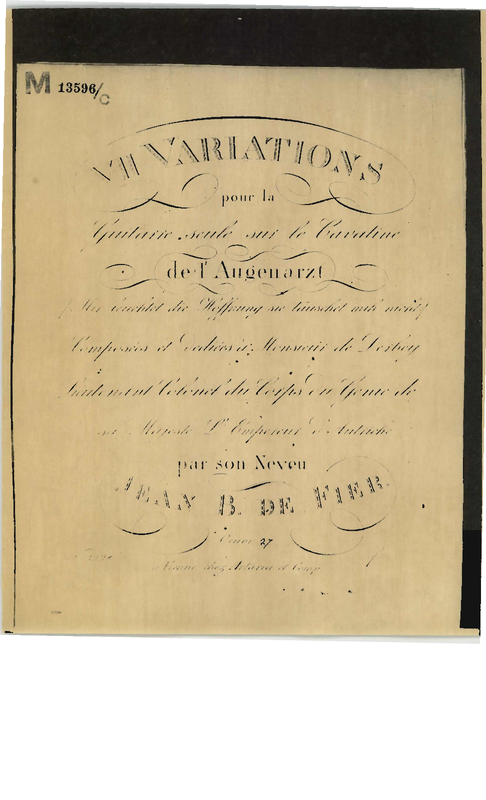 M 13596/C
VII VARIATIONS
pour la
Guitarre seule sur le Cavatine
de l'Augenarzt
Mir leuchtet die Hoffnung sie täuschet mich nicht
Composées et Dediées à Monsieur de
Lieutenant Colonel du Corps du Genie de
sa Majesté L'Empereur d'Autriche
par son Neveu
JEAN B. DE FIER
Oeuv: 27
à Vienne chez Artaria et Comp.